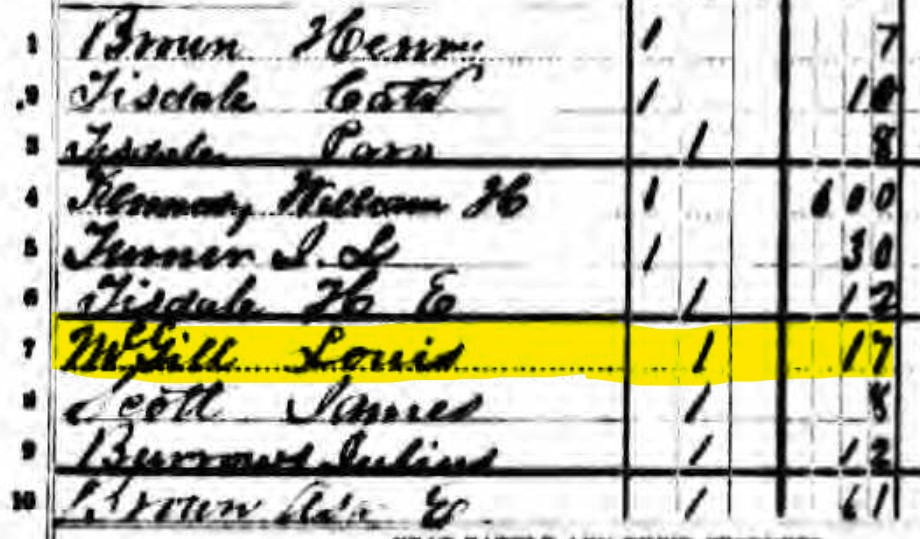 1 Brown Henry 1 7
2 Tisdale Cato 1 10
3 Tisdale 1 8
4 Kennedy William H 1 600
5 Turner I. S 1 30
6 Tisdale H E 1 12
7 McGill Louis 1 17
8 Scott James 1 8
9 Burrows Julius 1 12
10 Brown E 1 61